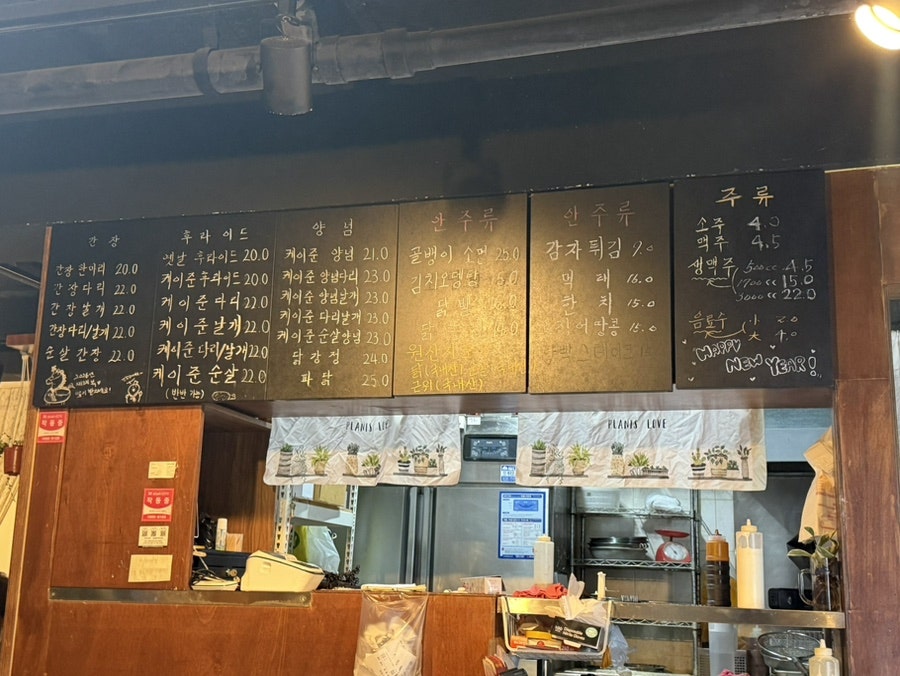 간장
간장 한마리 20.0
간장다리 22.0
간장날개 22.0
간장다리/날개 22.0
순살 간장 22.0
후라이드
옛날 후라이드 20.0
케이준후라이드 20.0
케이준다리 22.0
케이준날개 22.0
케이준 다리/날개 22.0
케이준 순살 22.0
(반반 가능)
양념
케이준 양념 21.0
케이준 양념다리 23.0
케이준 양념날개 23.0
케이준 다리날개 23.0
케이준순살양념 23.0
닭강정 24.0
파닭 25.0
안주류
골뱅이 소면 25.0
김치오뎅탕
원산
닭(국내산)
안주류
감자튀김 9.0
먹태 16.0
한치 15.0
땅콩 15.0
주류
소주 4.0
맥주 4.5
생맥주 500cc 4.5
1700cc 15.0
3000cc 22.0
음료수 小 2.0
大 4.0
HAPPY
NEW YEAR!
PLANTS
PLANTS LOVE